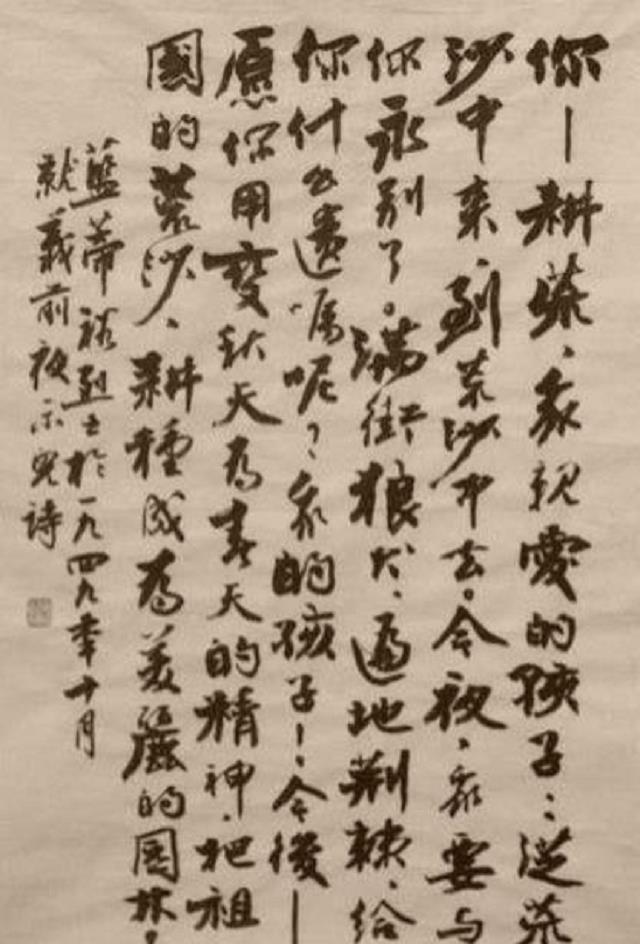 你—耕荒、我親愛的孩子：從荒
沙中來、到荒沙中去。今夜、我要与
你永别了。滿街狼犬、遍地荆棘、给
你什么遺嘱呢？我的孩子！今後—
愿你用變秋天為春天的精神、把祖
國的荒沙、耕種成為美麗的園林。
藍蒂裕烈士於一九四九年十月
就義前夜示兒詩